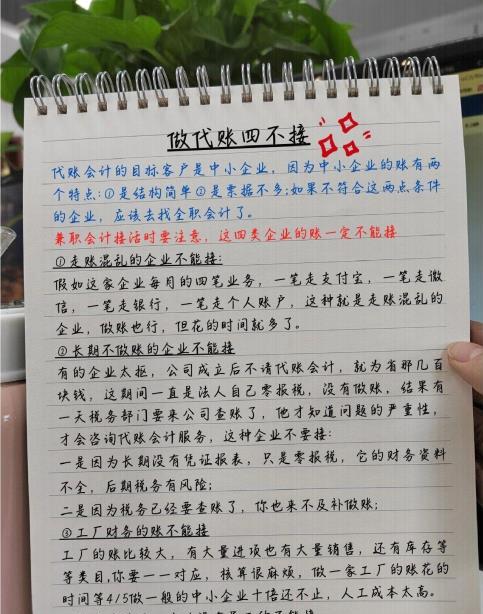 做代账四不接
代账会计的目标客户是中小企业，因为中小企业的账有两
个特点：①是结构简单②是票据不多；如果不符合这两点条件
的企业，应该去找全职会计了。
兼职会计接活时要注意，这四类企业的账一定不能接
①走账混乱的企业不能接：
假如这家企业每月的四笔业务，一笔走支付宝，一笔走微
信，一笔走银行，一笔走个人账户，这种就是走账混乱的
企业，做账也行，但花的时间就多了。
②长期不做账的企业不能接
有的企业太抠，公司成立后不请代账会计，就为省那几百
块钱，这期间一直是法人自己零报税，没有做账，结果有
一天税务部门要来公司查账了，他才知道问题的严重性，
才会咨询代账会计服务，这种企业不要接：
一是因为长期没有凭证报表，只是零报税，它的财务资料
不全，后期税务有风险；
二是因为税务已经要查账了，你也来不及补做账；
③工厂财务的账不能接
工厂的账比较大，有大量进项也有大量销售，还有库存等
等类目，你要一一对应，核算很麻烦，做一家工厂的账花的
时间等4/5做一般的中小企业十倍还不止，人工成本太高。